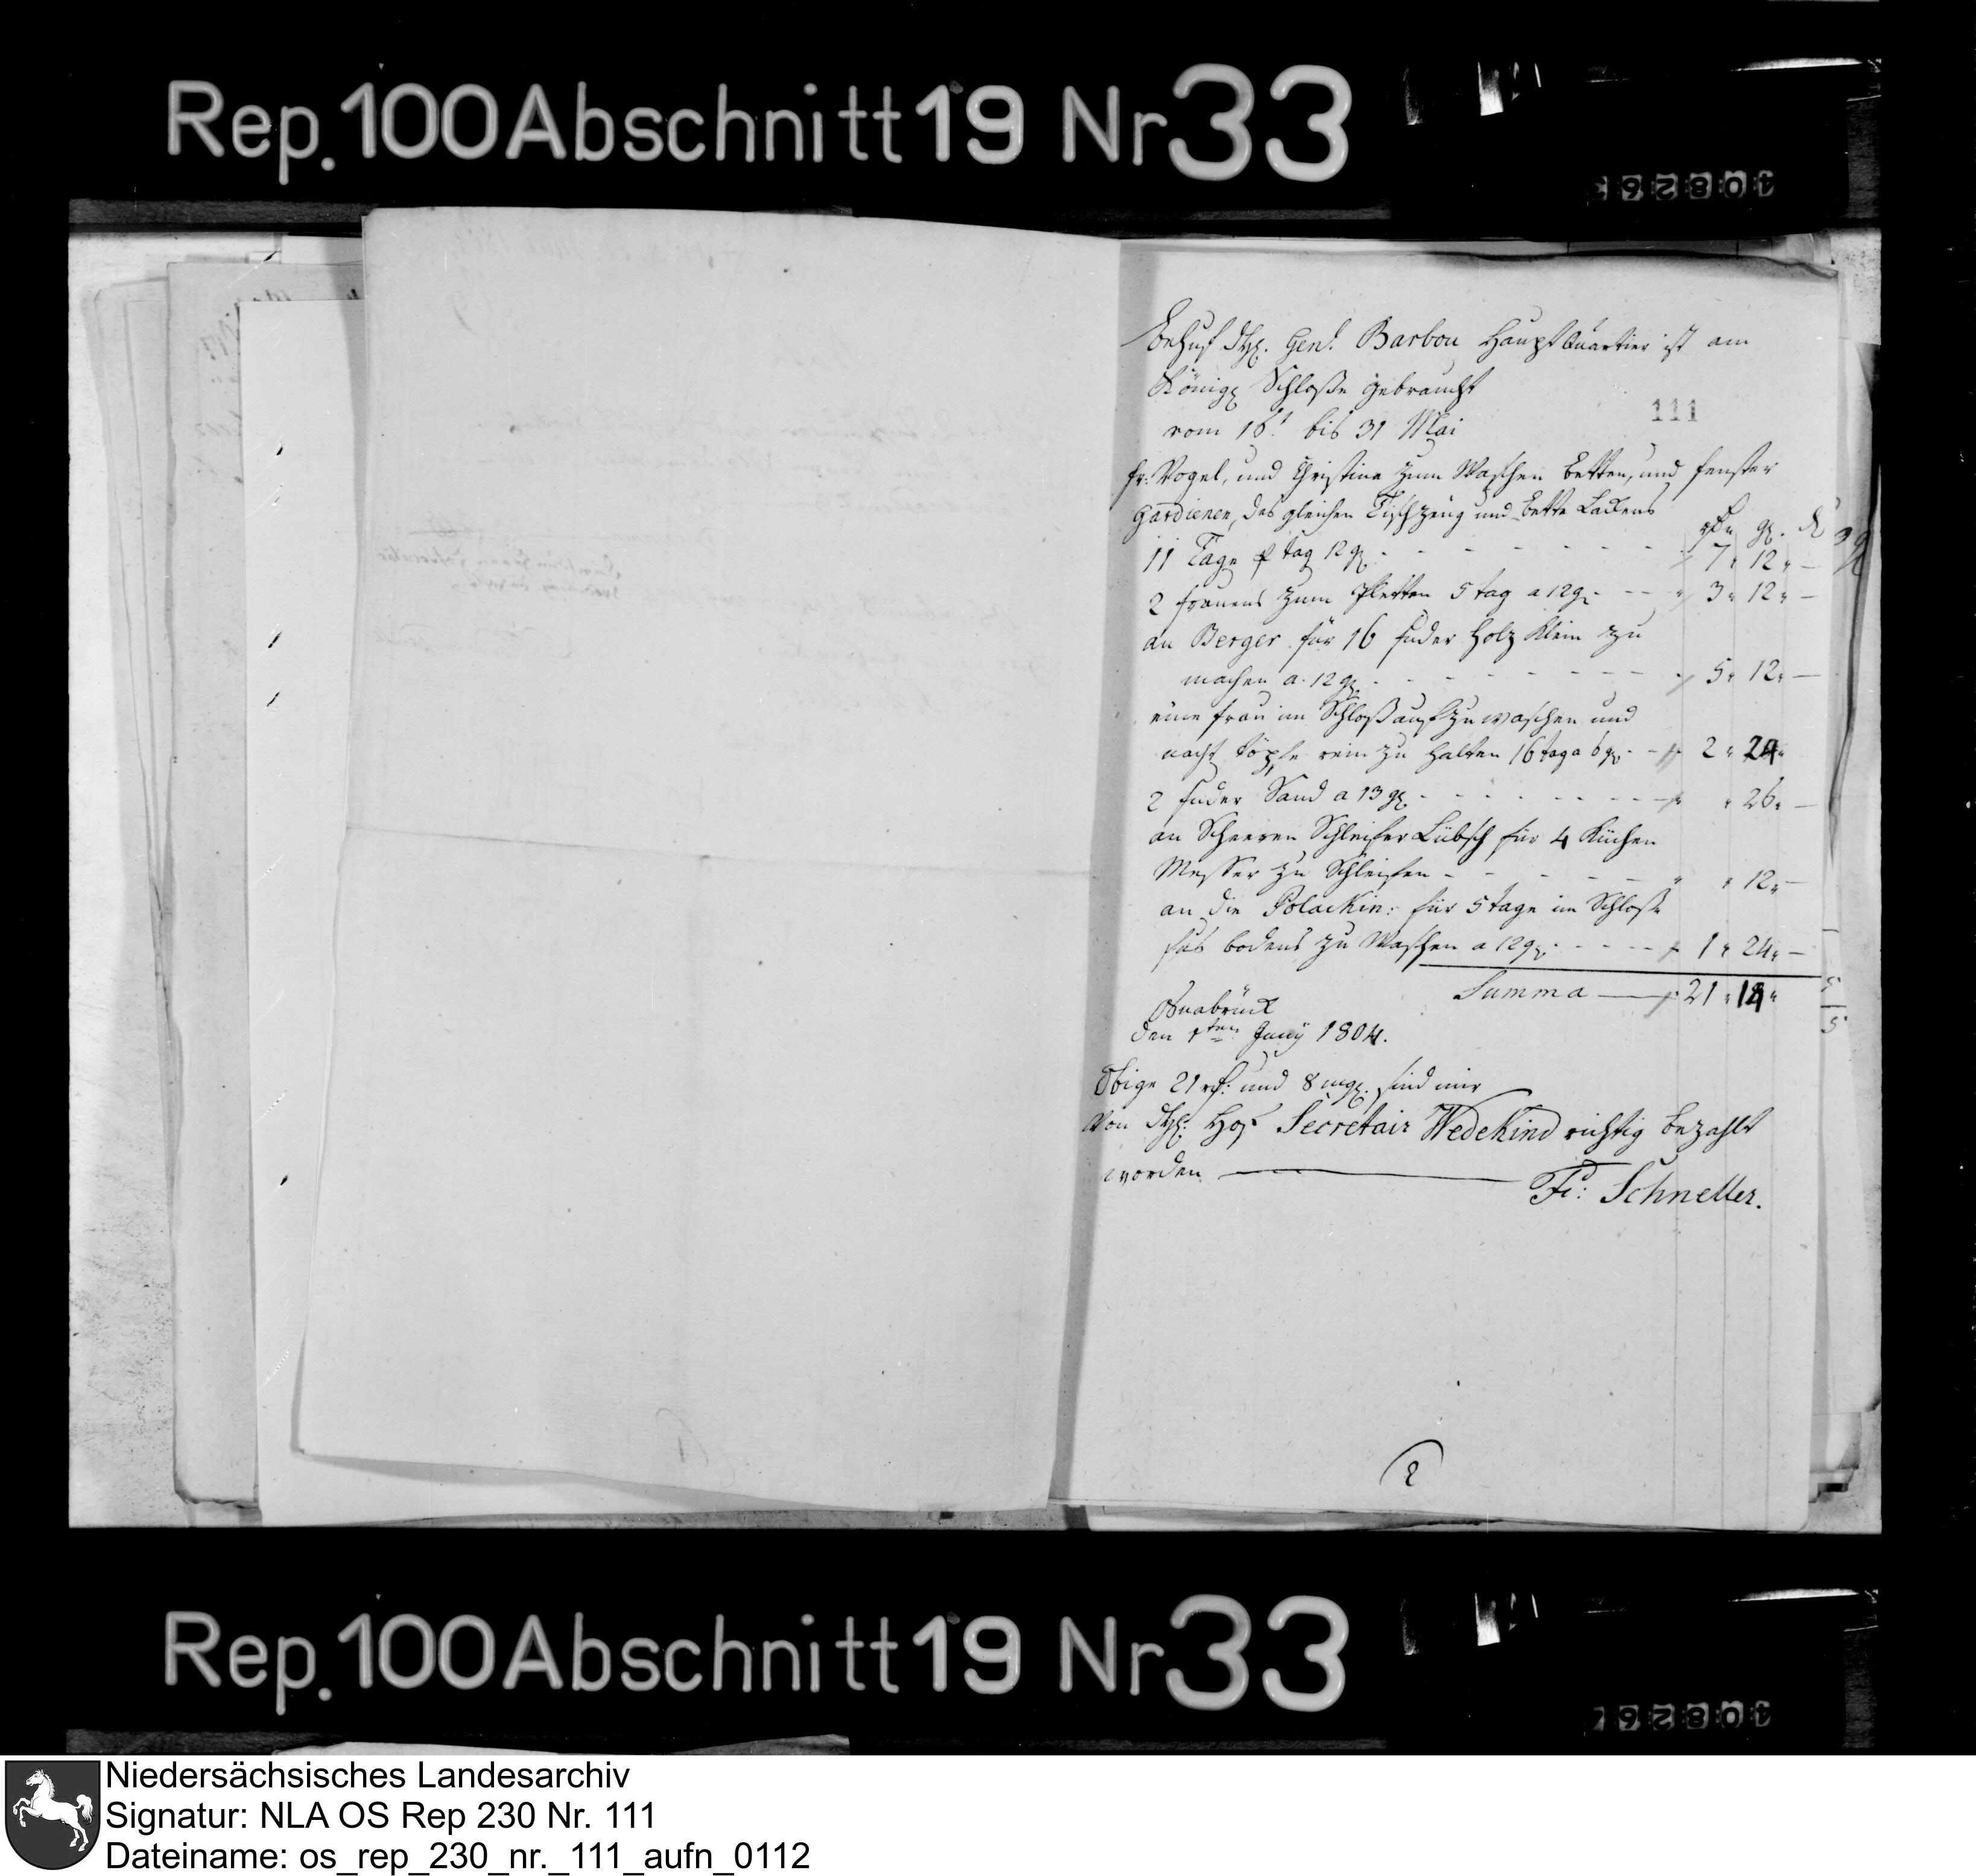 Rep. 100 Abschnitt 19 Nr 33
Behuf des H. Genl. Barbou Haupt Quartier ist am
Königl Schloße gebraucht
vom 16t bis 31 Mai
111
Fr: Vogel, und Christina zum Waschen Betten, und Fenster
Gardienen, des gleichen Tischzeug und Bette Lackens
rthlr gl. d
11 Tage p tag 12 gl. - - - 7 " 12 " —
2 frauens zum Pletten 5 tag a 12 gl - - - 3 " 12 " —
an Berger für 16 fuder Holz Klein zu
machen a. 12 gl. - - - 5 " 12 " —
eine frau im Schloß aufzuwaschen und
nacht töpfe rein zu halten 16 tag a 6 gl. - - 2 " 24 "
2 fuder Sand a 13 gl. - - - " 26 " —
an Scheeren Schleifer Lübsch für 4 Küchen
Messer zu Schleifen - - - " 12 " —
an die Polackin: für 5 tage im Schloße
fus bodens zu Waschen a 12 gl. - - - 1 " 24 " —
Summa — 21 "
Osnabrück
den 1ten Juny 1804.
Obige 21 rth: und 8 mgl. sind mir
Von H: Hof Secretair Wedekind richtig bezahlt
worden — Fr: Schneller.
2
Rep. 100 Abschnitt 19 Nr 33
Niedersächsisches Landesarchiv
Signatur: NLA OS Rep 230 Nr. 111
Dateiname: os_rep_230_nr._111_aufn_0112